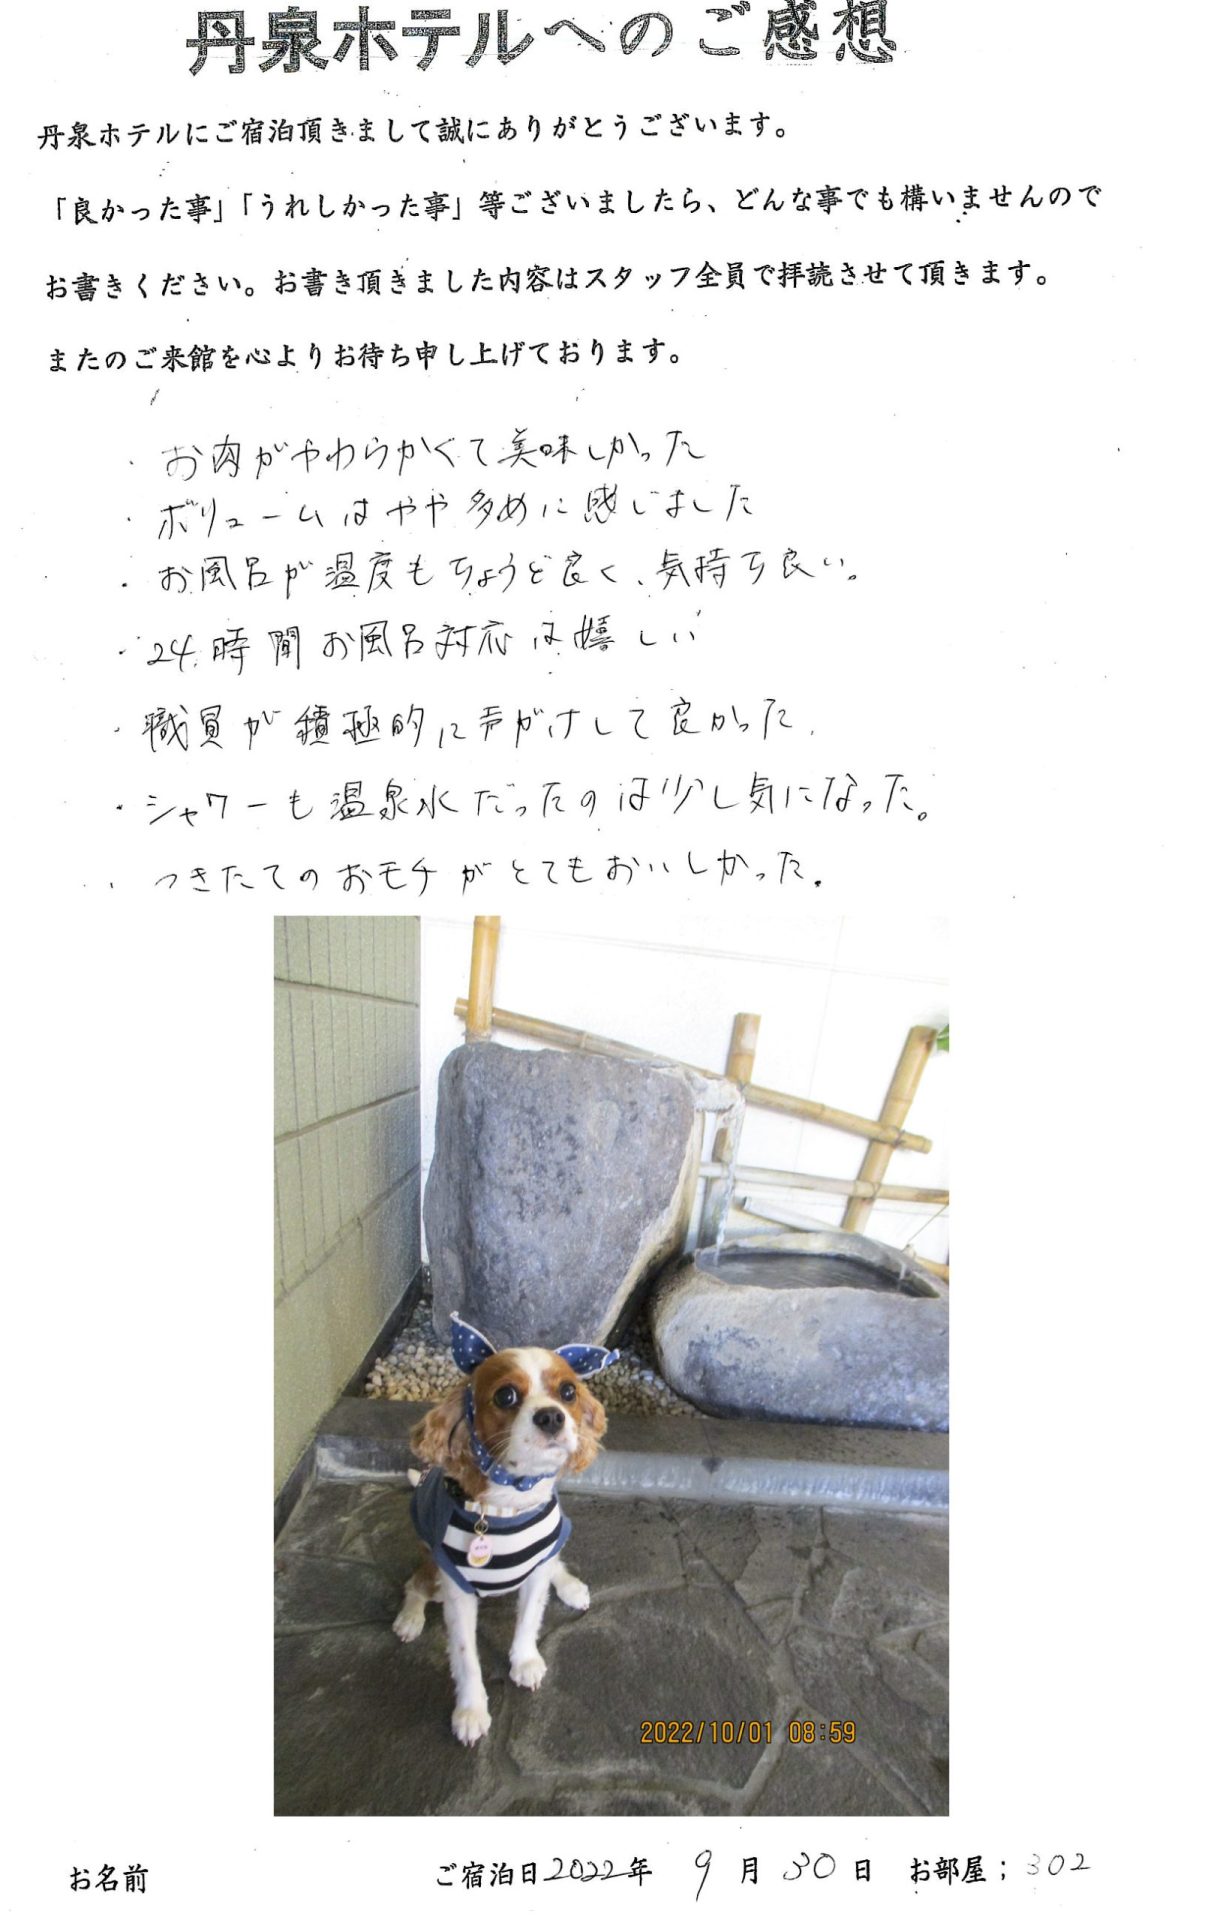 丹泉ホテルへのご感想
丹泉ホテルにご宿泊頂きまして誠にありがとうございます。
「良かった事」「うれしかった事」等ございましたら、どんな事でも構いませんので
お書きください。お書き頂きました内容はスタッフ全員で拝読させて頂きます。
またのご来館を心よりお待ち申し上げております。
・お肉がやわらかくて美味しかった
・ボリュームはやや多めに感じました
・お風呂が温度もちょうど良く、気持ち良い。
・24時間お風呂対応は嬉しい
・職員が積極的に声がけして良かった.
・シャワーも温泉水だったのは少し気になった。
・つきたてのおモチがとてもおいしかった.
2022/10/01 08:59
お名前 ご宿泊日2022年 9月30日 お部屋；302